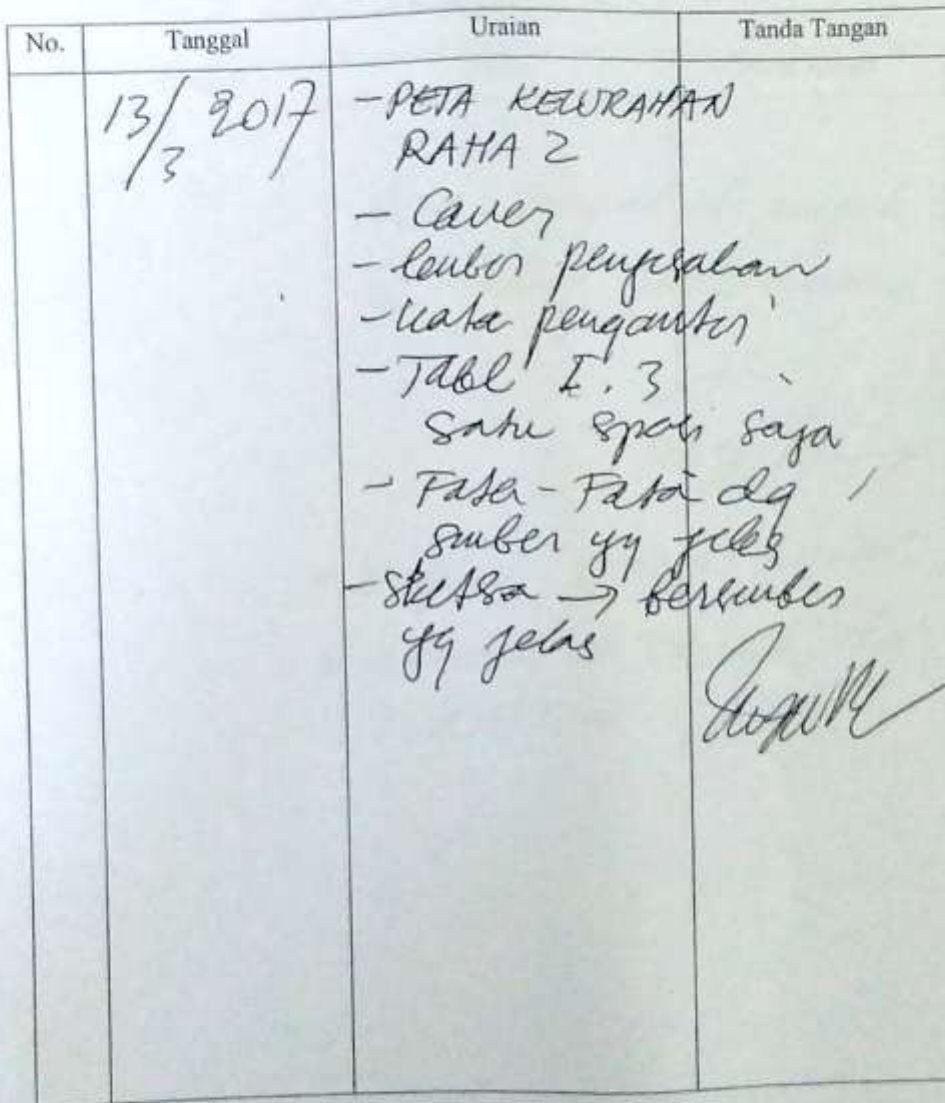 No. Tanggal Uraian Tanda Tangan
13/3 2017 - PETA KELURAHAN
RAHA 2
- Cover
- lembar pengesahan
- kata pengantar
- Tabel I.3
satu spasi saja
- Foto-Foto dg
sumber yg jelas
- Sketsa → bersumber
yg jelas